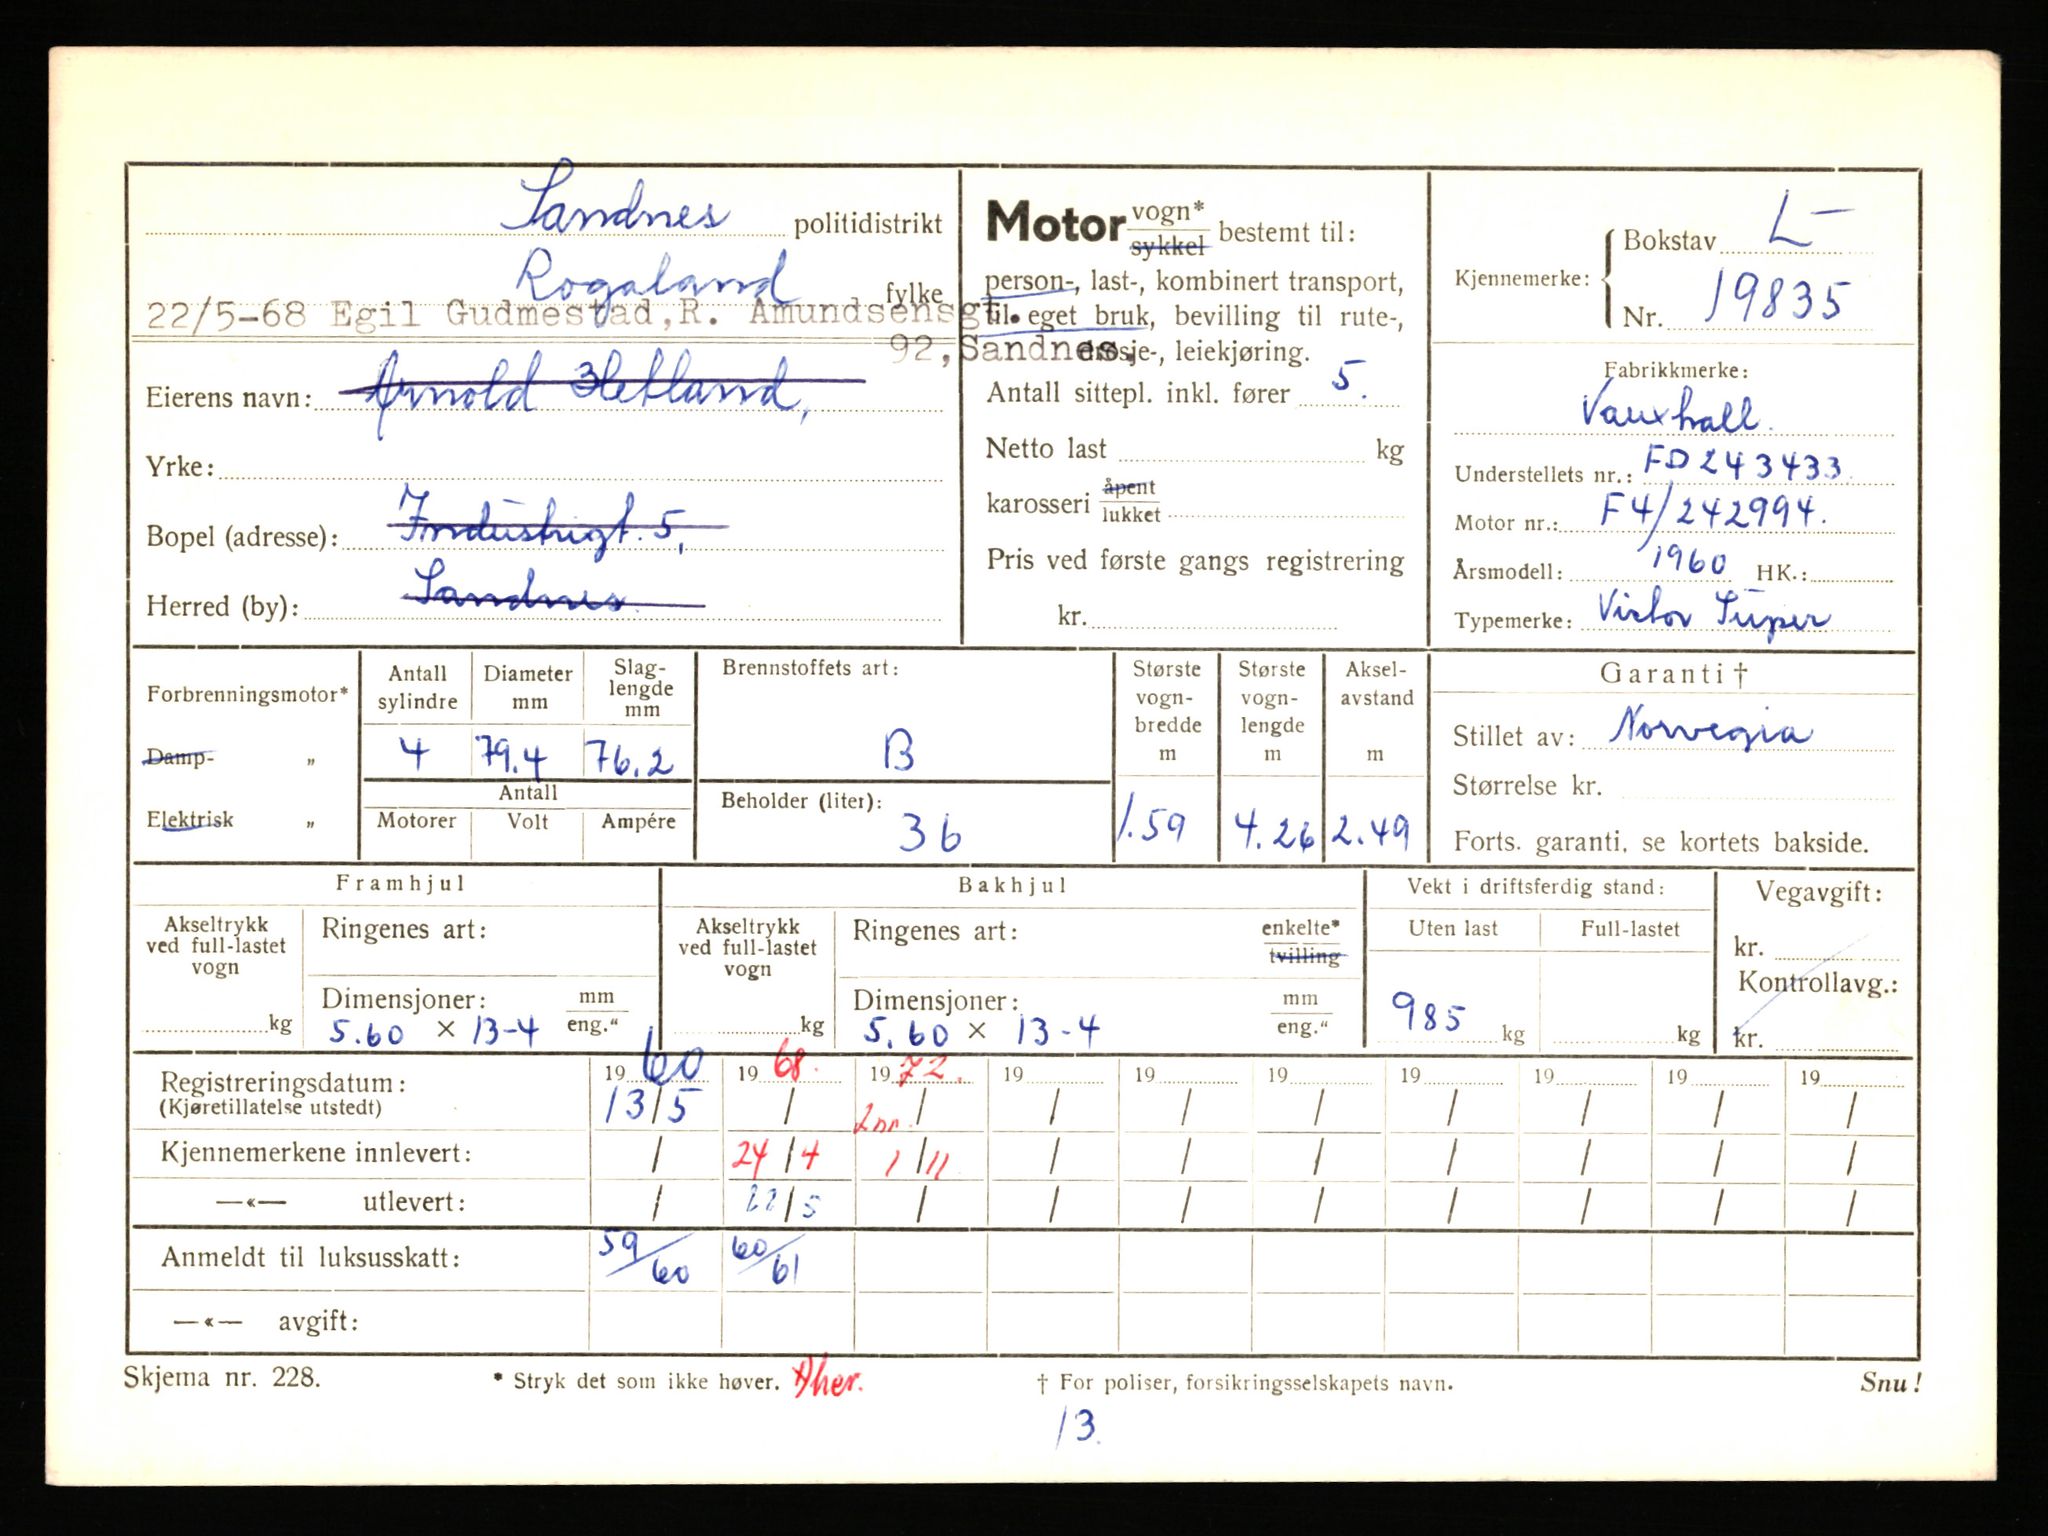 Sandnes politidistrikt
Rogaland fylke
22/5-68 Egil Gudmestad, R. Amundsensgt.
92, Sandnes.
Eierens navn: Arnold Hetland,
Yrke:
Bopel (adresse): Industrigt. 5,
Herred (by): Sandnes
Motor vogn* sykkel bestemt til:
person-, last-, kombinert transport,
til eget bruk, bevilling til rute-,
drosje-, leiekjøring.
Antall sittepl. inkl. fører 5.
Netto last kg
karosseri åpent lukket
Pris ved første gangs registrering
kr.
Kjennemerke: Bokstav L-
Nr. 19835
Fabrikkmerke:
Vauxhall.
Understellets nr.: FD243433.
Motor nr.: F4/242994.
Årsmodell: 1960 HK.:
Typemerke: Victor Super
Forbrenningsmotor*
Damp- "
Elektrisk "
Antall sylindre Diameter mm Slag-lengde mm
4 79.4 76.2
Antall
Motorer Volt Ampére
Brennstoffets art:
B
Beholder (liter):
36
Største vogn-bredde m Største vogn-lengde m Aksel-avstand m
1.59 4.26 2.49
Garanti †
Stillet av: Norvegia
Størrelse kr.
Forts. garanti, se kortets bakside.
Framhjul
Akseltrykk ved full-lastet vogn
kg
Ringenes art:
Dimensjoner: mm eng."
5.60 × 13-4
Bakhjul
Akseltrykk ved full-lastet vogn
kg
Ringenes art: enkelte* tvilling
Dimensjoner: mm eng."
5.60 × 13-4
Vekt i driftsferdig stand:
Uten last Full-lastet
985 kg kg
Vegavgift:
kr.
Kontrollavg.:
kr.
Registreringsdatum: 1960 1968. 1972. 19 19 19 19 19 19 19
(Kjøretillatelse utstedt) 13/5 / 2 nr. / / / / / / / /
Kjennemerkene innlevert: / 24/4 1/11 / / / / / / /
—«— utlevert: / 22/5 / / / / / / / /
Anmeldt til luksusskatt: 59/60 60/61
—«— avgift:
Skjema nr. 228. * Stryk det som ikke høver. † For poliser, forsikringsselskapets navn. Snu!
13.